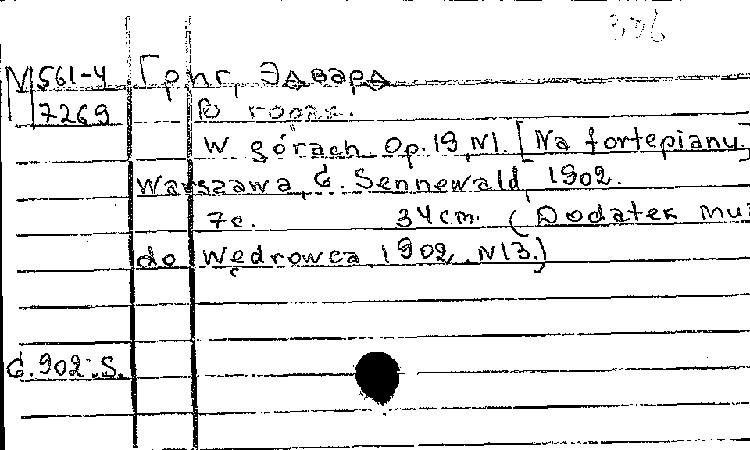 3,36
M 561-4 Григ, Эдвард
7269 В горах.
W górach. Op. 19, N1. [Na fortepianu]
Warszawa, G. Sennewald, 1902.
7с. 34 cm. (Dodatek muz
do Wędrowca 1902, N13.)
G. 902. S.